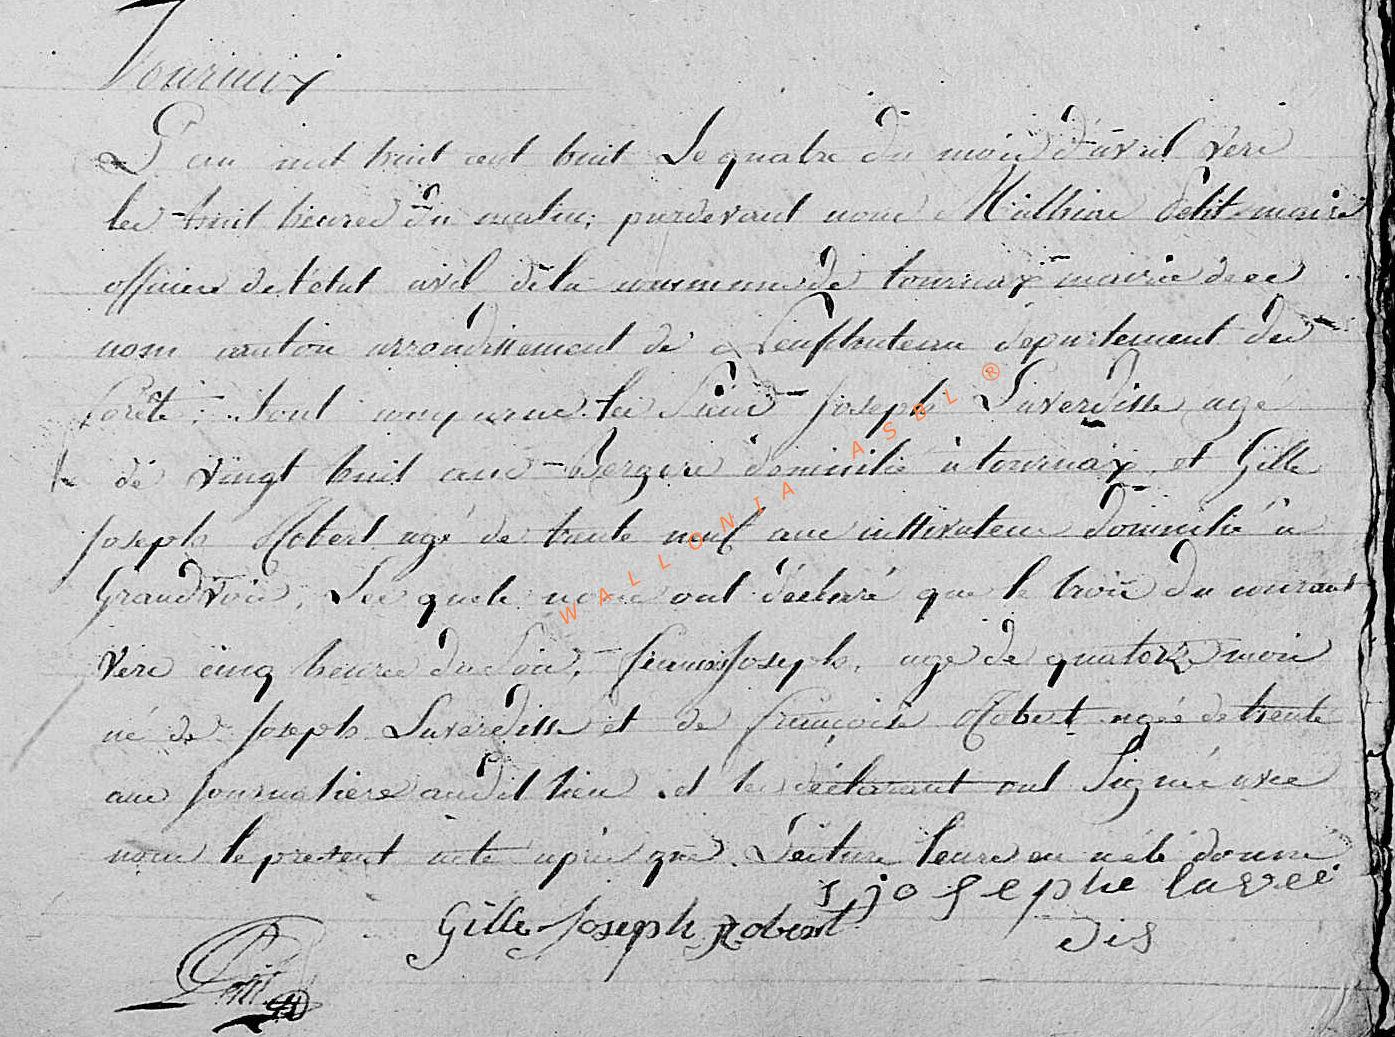 Tournaix
L'an mil huit cent huit Le quatre du mois d'avril vers
les huit heures du matin, pardevant nous Mathieu Petit maire
officier de l'état civil de la commune de tournay mairie de ce
nom canton arrondissement de Neufchateau département des
forêts, sont comparus les Sieur Joseph Laverdisse agé
de vingt huit ans Berger domicilié a tournay, et Gille
Joseph Robert agé de trente neuf ans cultivateur domicilié a
Grandvoir, Les quels nous ont déclaré que le trois du courant
vers cinq heures du soir, Joseph, age de quatorze mois
né de Joseph Laverdisse et de françoise Robert agée de trente
ans journaliere audit lieu, et les déclarant ont Signé avec
nous le present acte après que Lecture leure en a été donné
josephe lavee
Gille Joseph Robert
dis
Petit
WALLONIA ASBL ®